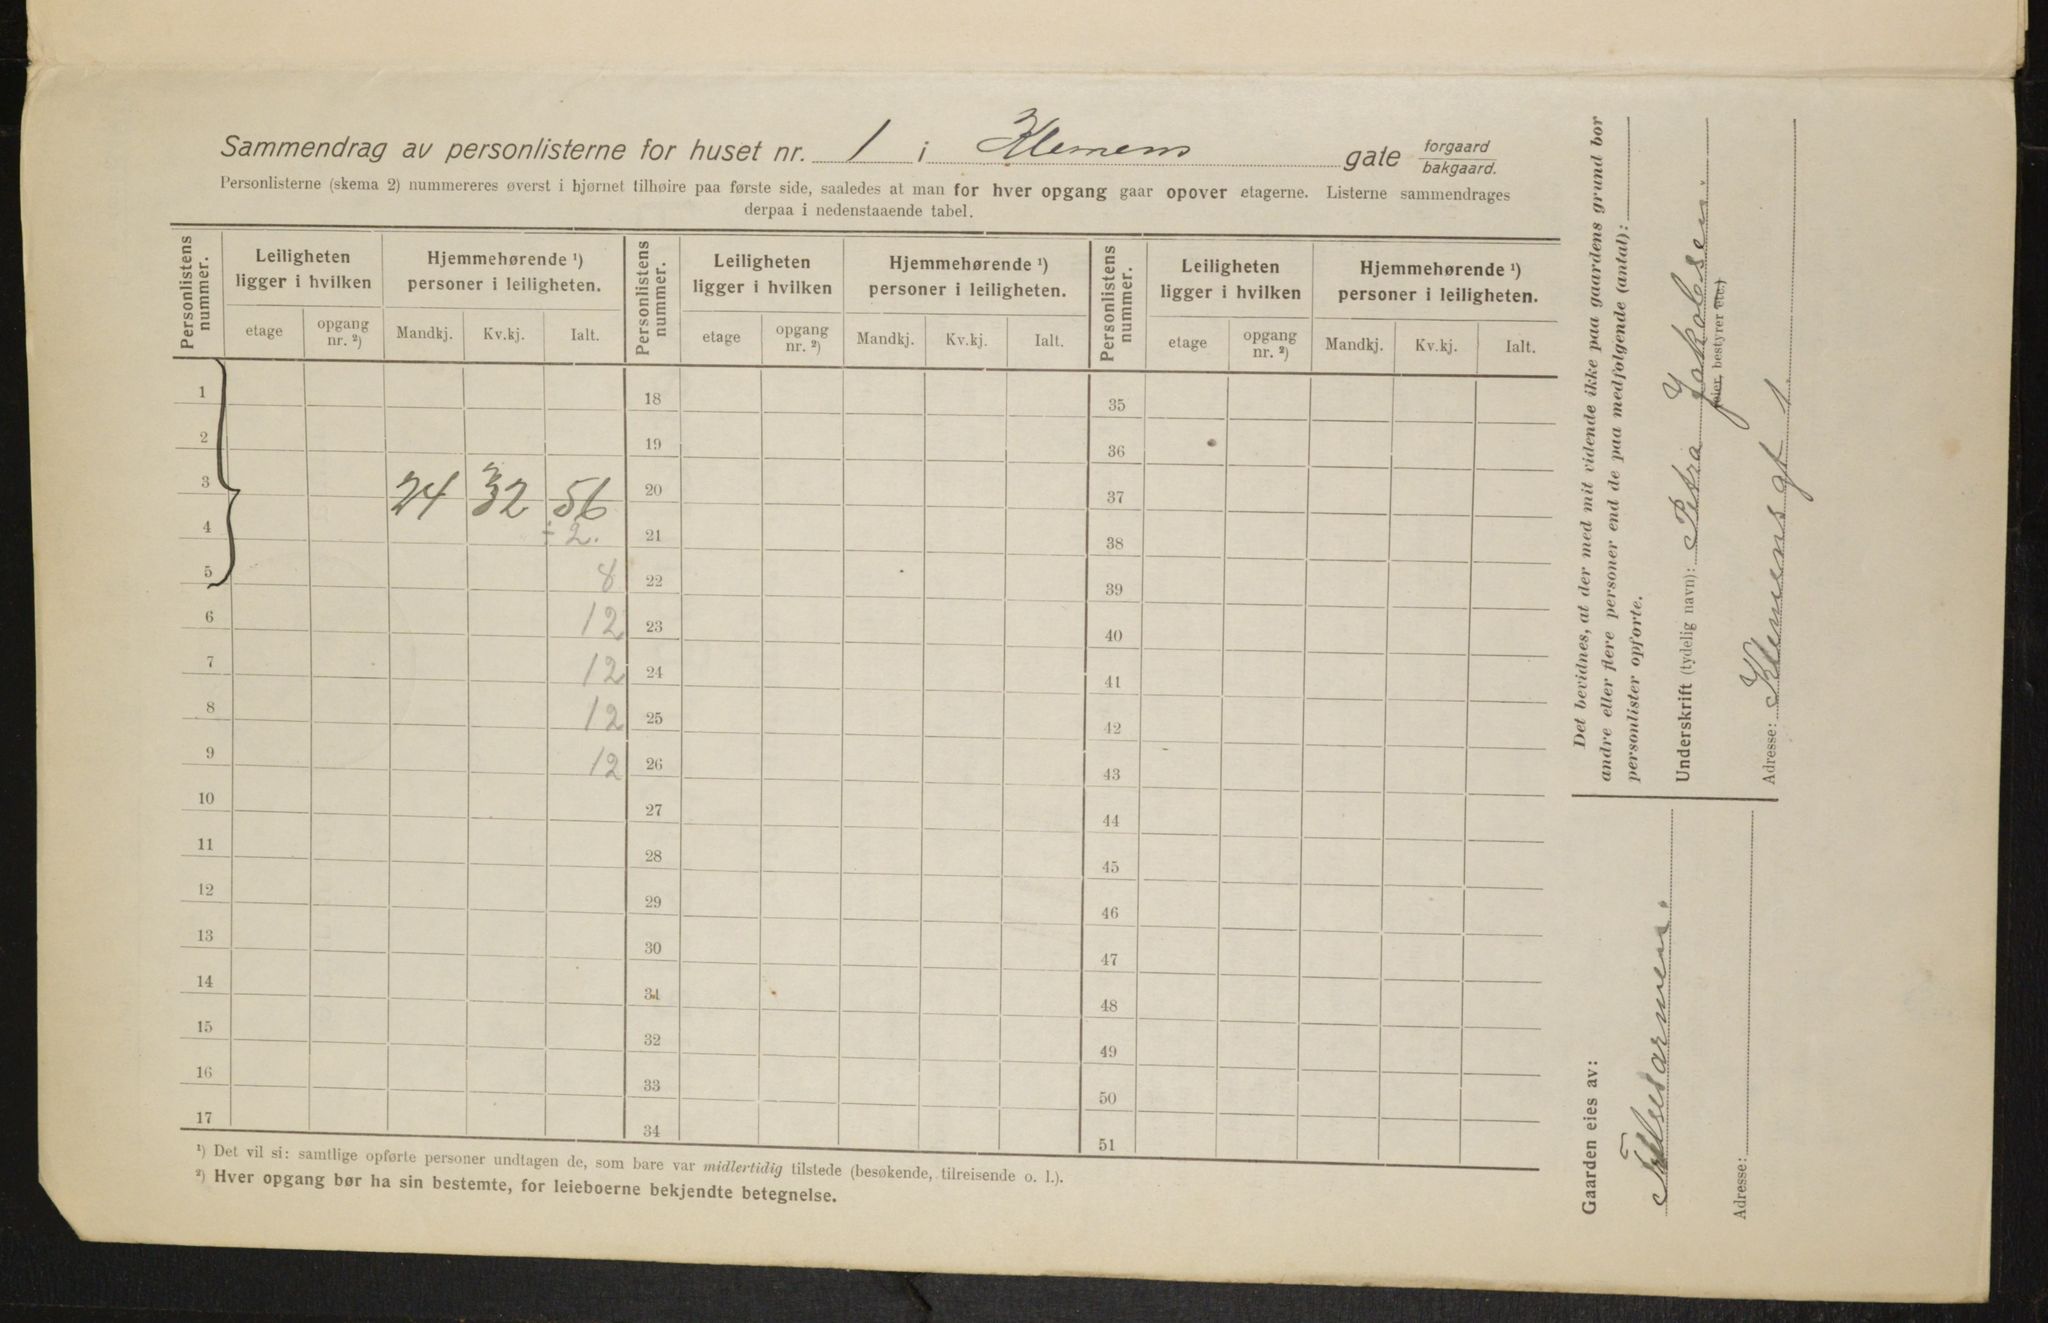 Sammendrag av personlisterne for huset nr. 1 i Klemens gate forgaard bakgaard.
Personlisterne (skema 2) nummereres øverst i hjørnet tilhøire paa første side, saaledes at man for hver opgang gaar opover etagerne. Listerne sammendrages
derpaa i nedenstaaende tabel.
Personlistens nummer. Leiligheten ligger i hvilken Hjemmehørende ¹) personer i leiligheten. Personlistens nummer. Leiligheten ligger i hvilken Hjemmehørende ¹) personer i leiligheten. Personlistens nummer. Leiligheten ligger i hvilken Hjemmehørende ¹) personer i leiligheten.
etage opgang nr. ²) Mandkj. Kv.kj. Ialt. etage opgang nr. ²) Mandkj. Kv.kj. Ialt. etage opgang nr. ²) Mandkj. Kv.kj. Ialt.
1 18 35
2 19 36
3 24 32 56 20 37
4 ÷ 2. 21 38
5 8 22 39
6 12 23 40
7 12 24 41
8 12 25 42
9 12 26 43
10 27 44
11 28 45
12 29 46
13 30 47
14 31 48
15 32 49
16 33 50
17 34 51
¹) Det vil si: samtlige opførte personer undtagen de, som bare var midlertidig tilstede (besøkende, tilreisende o. l.).
²) Hver opgang bør ha sin bestemte, for leieboerne bekjendte betegnelse.
Det bevidnes, at der med mit vidende ikke paa gaardens grund bor
andre eller flere personer end de paa medfølgende (antal):
personlister opførte.
Underskrift (tydelig navn): Petra Jakobsen.
(eier, bestyrer etc.)
Adresse: Klemensgt 1
Gaarden eies av:
Adresse: